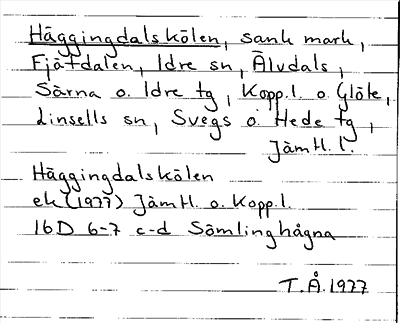 Häggingdalskölen, sank mark,
Fjätdalen, Idre sn, Älvdals,
Särna o. Idre tg, Kopp.l. o Glöte,
Linsells sn, Svegs o Hede tg,
Jämtl. l.
Häggingdalskölen
ek (1977) Jämtl. o. Kopp.l.
16D 6-7 c-d Sömlinghågna
T.Å. 1977